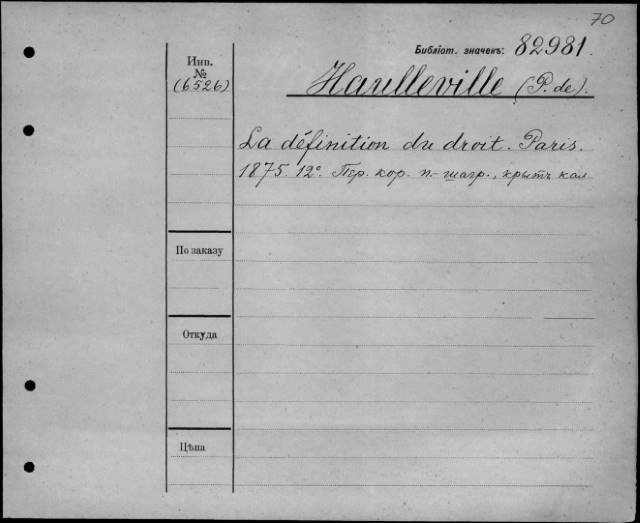 70
Библіот. значекъ: 82981.
Инв.
№
(6526)
Haulleville (P. de).
La définition du droit. Paris.
1875. 12°. Пер. кор. п.-шагр., крытъ кал.
По заказу
Откуда
Цѣна